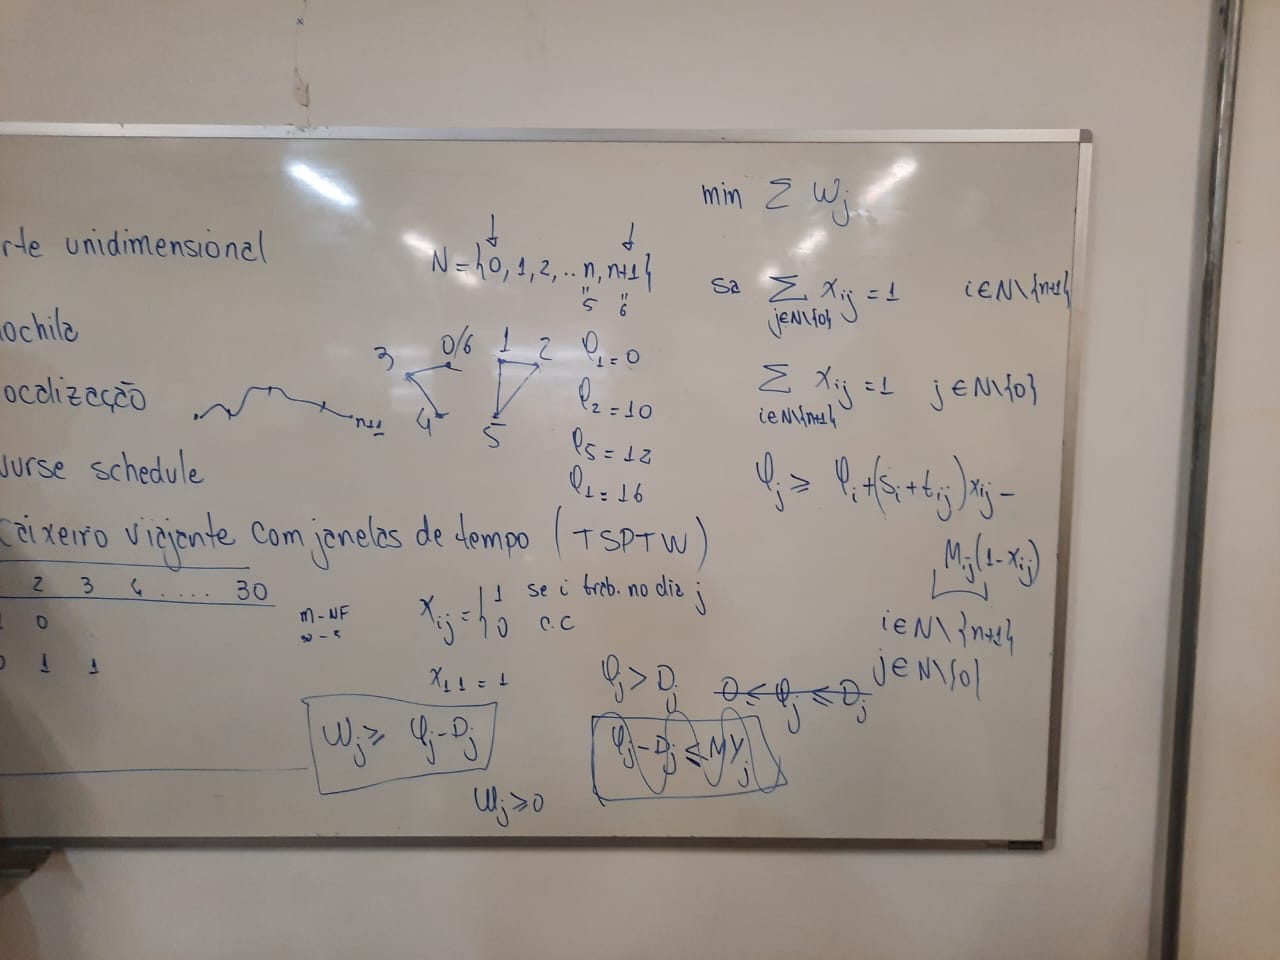 rte unidimensional
ochila
ocalização
Nurse schedule
caixeiro viajante com janelas de tempo (TSPTW)
2 3 4 .... 30
0
1 1
m-NF
N = {0, 1, 2, .. n, n+1}
" "
5 6
3 0/6 1 2
4 5
n+1
φ₁ = 0
φ₂ = 10
φ₅ = 12
φ₁ = 16
x_ij = { 1 se i trab. no dia j
0 c.c
x₁₁ = 1
W_j ≥ φ_j - D_j
W_j ≥ 0
φ_j > D_j
0 ≤ φ_j ≤ D_j
φ_j - D_j ≤ M Y_j
min Σ W_j
sa Σ x_ij = 1 i ∈ N\{n+1}
j∈N\{0}
Σ x_ij = 1 j ∈ N\{0}
i∈N\{n+1}
φ_j ≥ φ_i + (s_i + t_ij) x_ij -
M_ij (1 - x_ij)
i ∈ N\{n+1}
j ∈ N\{0}